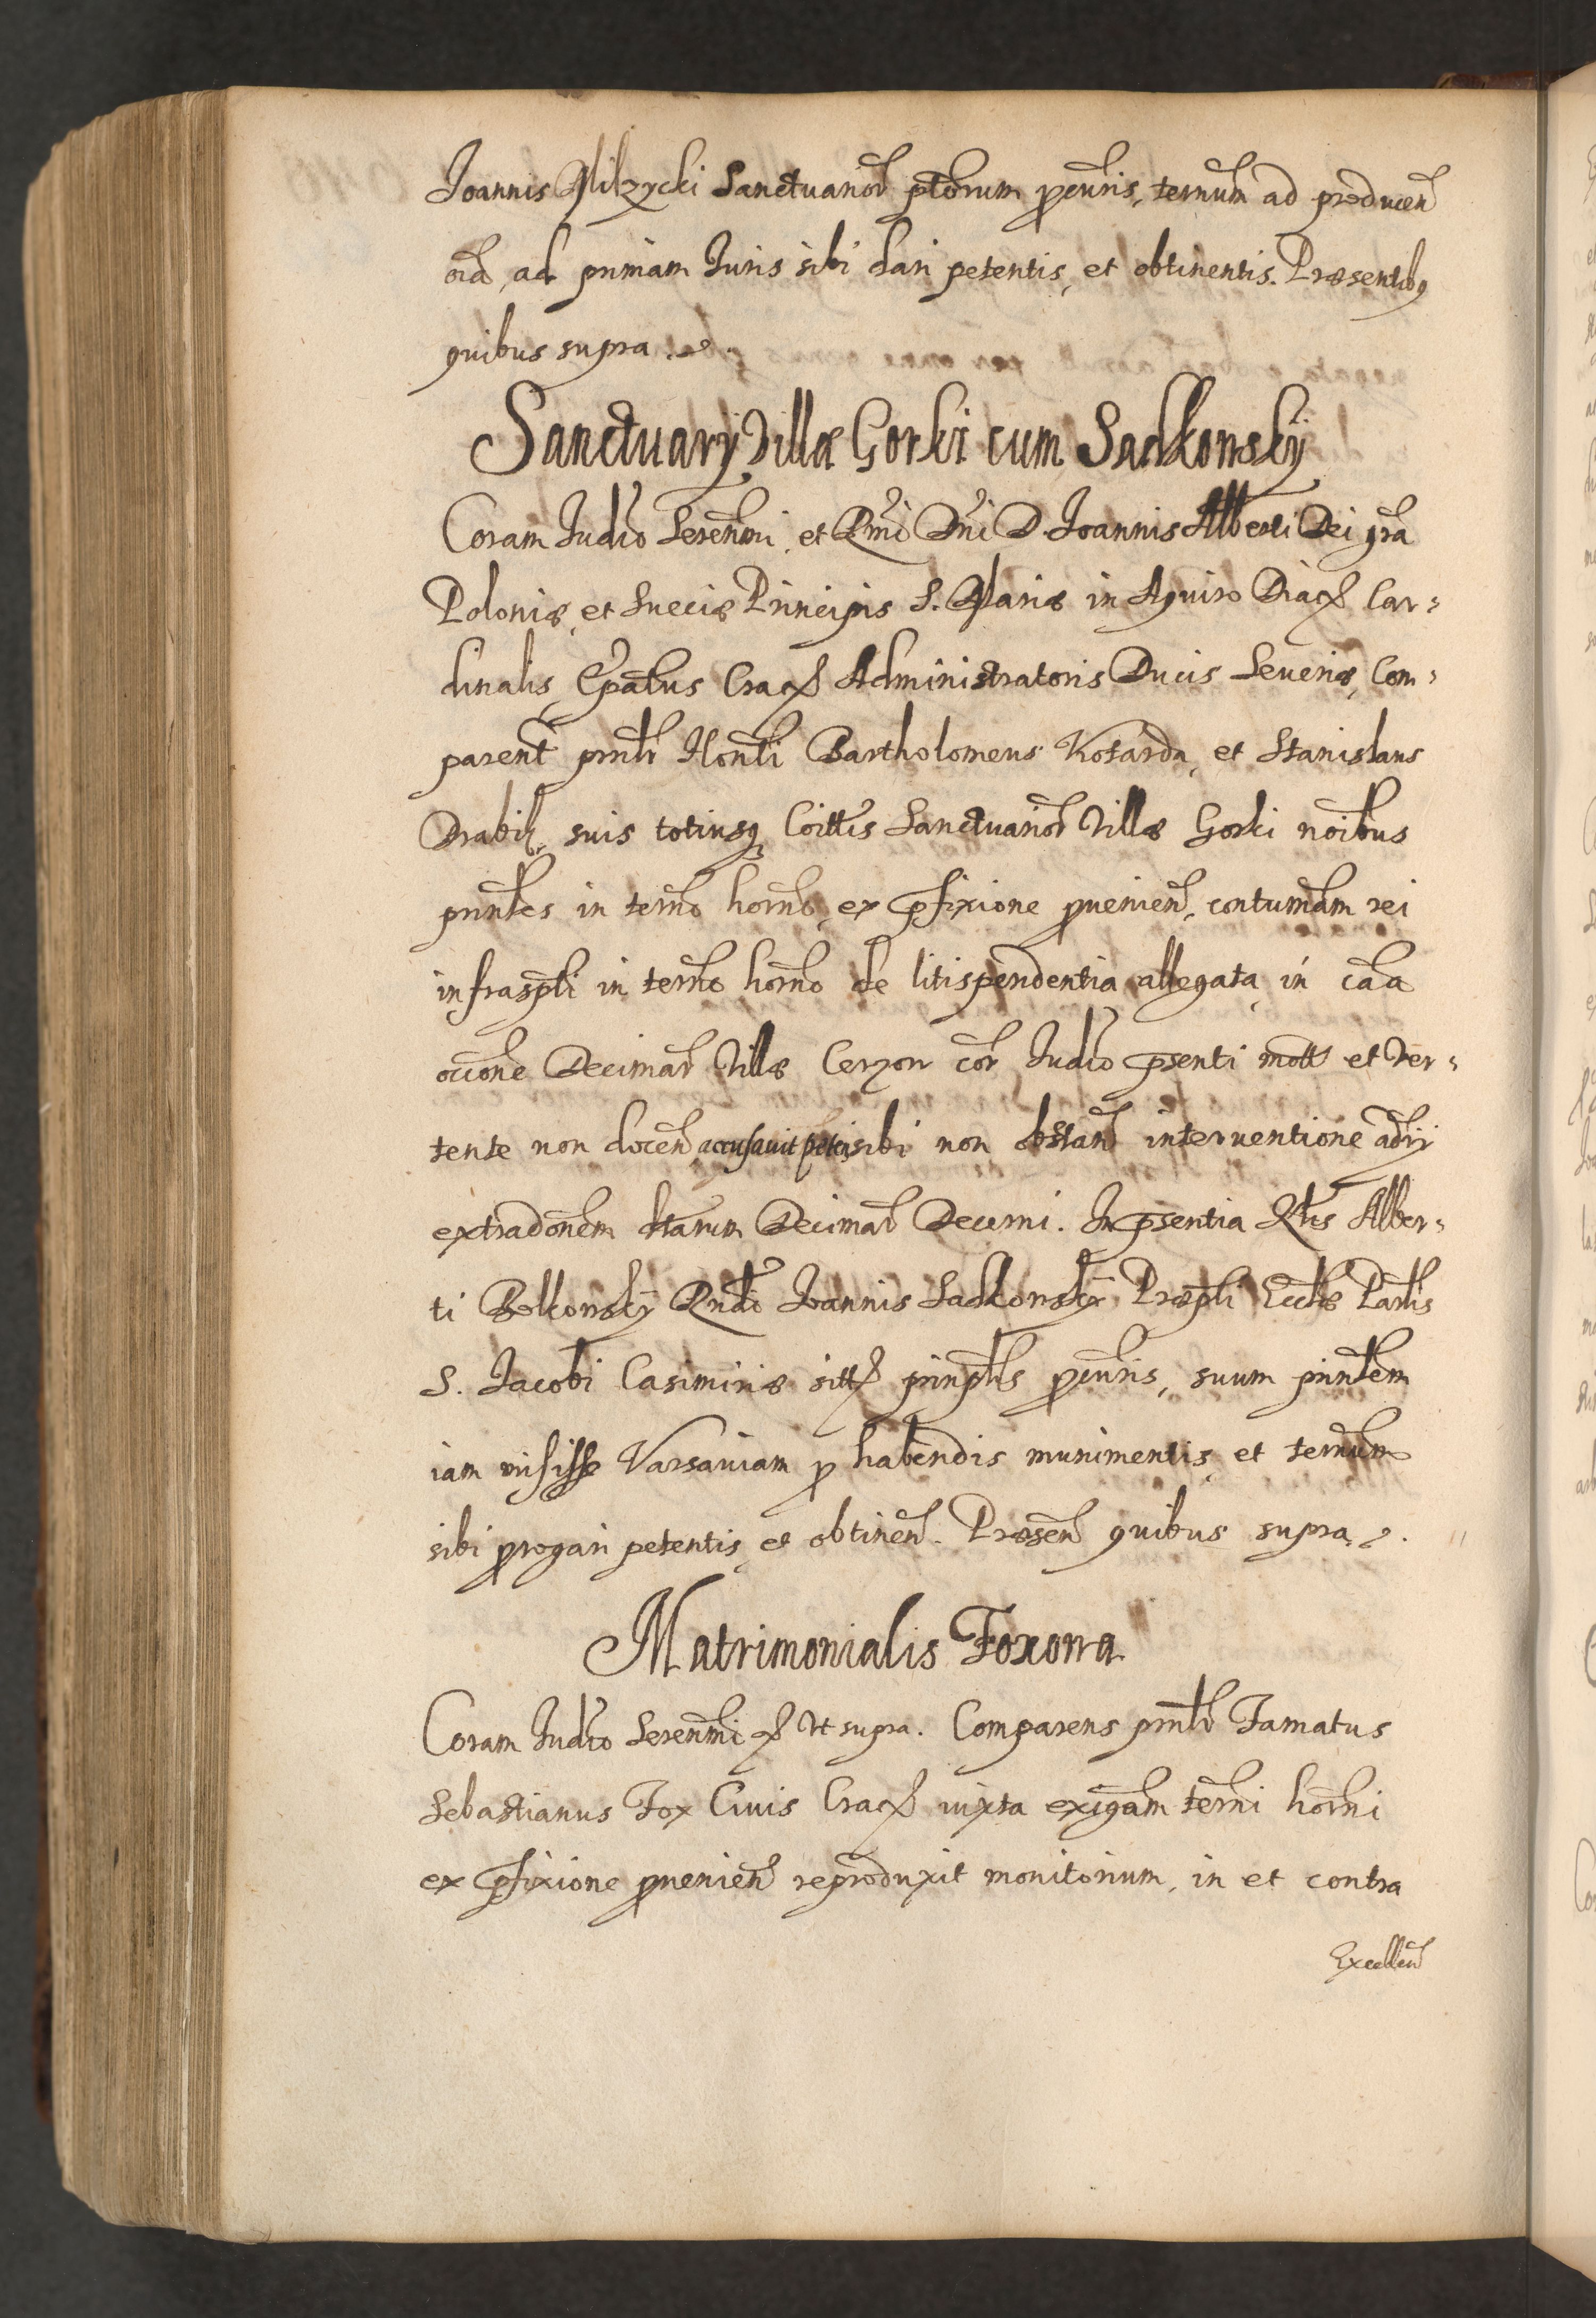 Joannis Milzycki Sanctuarior̄ pctōrum pcuris, ternūm ad producen̄
oīa, ad primam Iuris sibi dari petentis, et obtinentis. Præsentibq
quibus supra.
Sanctuarÿ Villæ Gorki cum Sadkonskÿ
Coram Iudīo Serenmi, et Rmi Dni D. Joannis Alberti Dei gra
Poloniæ, et Sueciæ Principis S. Mariæ in Aquiro Diac Car-
dinalis, Epatus Crac Administratoris Ducis Seueriæ, Com-
parent pnlr Honti Bartholomeus Kotarda, et Stanislaus
Drabik, suis totiusq Coittis Sanctuarior̄ Villæ Gorki noibus
prinles in termo horno, ex pfixione puenien, contumam rei
infraspti in termo horno de litispendentia allegata in caa
occone Decimar Villæ Cerzon cor Iudio psenti mott et Ver-
tente non docen accusauit petiᵗ sibi non obstan interuentione adry
extradonem dtarum Decimar Decerni. In psentia Rlis Alber-
ti Bolkonskÿ Rndi Joannis Sadkonskÿ Præpti Eccliæ Parlis
S. Jacobi Casimiriæ sitt prinplis pcuris, suum prinlem
iam misisse Varsauiam p habendis munimentis, et ternum
sibi progari petentis, et obtinen. Præsen quibus supra.
Matrimonialis Foxowa
Coram Iudio Serenmi et Vt supra. Comparens pnlr Famatus
Sebastianus Fox Ciuis Crac iuxta exigam termi horni
ex pfixione puenien reproduxit monitorium, in et contra
Excellen